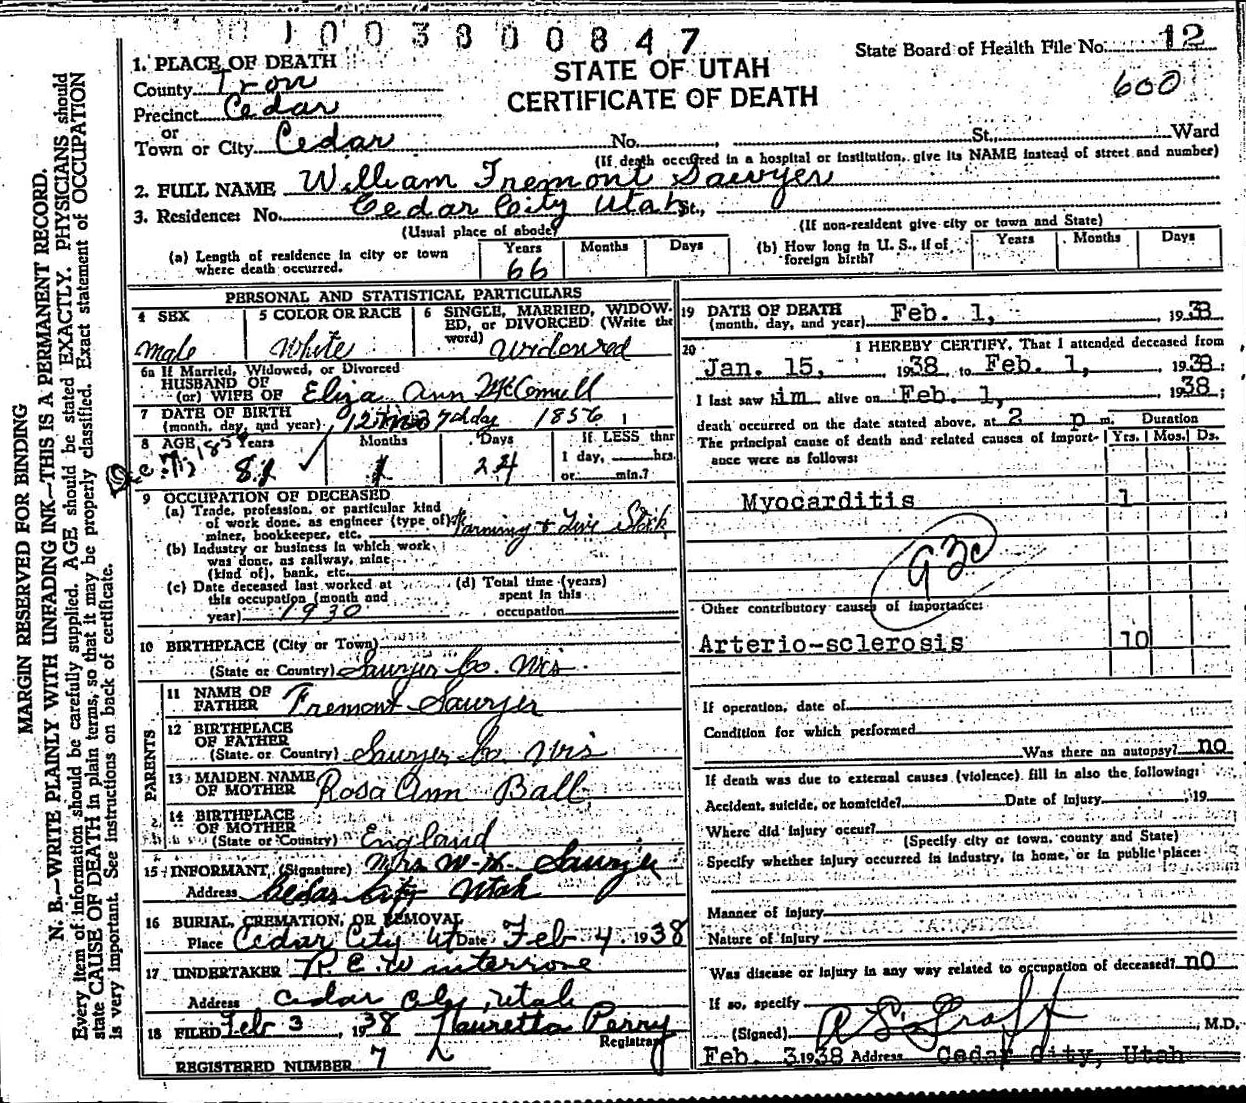 1003800847
State Board of Health File No. 12
600
STATE OF UTAH
CERTIFICATE OF DEATH
MARGIN RESERVED FOR BINDING
N. B.—WRITE PLAINLY WITH UNFADING INK—THIS IS A PERMANENT RECORD.
Every item of information should be carefully supplied. AGE should be stated EXACTLY. PHYSICIANS should
state CAUSE OF DEATH in plain terms, so that it may be properly classified. Exact statement of OCCUPATION
is very important. See instructions on back of certificate.
1. PLACE OF DEATH
County Iron
Precinct Cedar
or
Town or City Cedar No. , St. Ward
(If death occurred in a hospital or institution, give its NAME instead of street and number)
2. FULL NAME William Fremont Sawyer
3. Residence: No. Cedar City Utah St.,
(Usual place of abode) (If non-resident give city or town and State)
(a) Length of residence in city or town where death occurred. Years 66 Months Days
(b) How long in U. S., if of foreign birth? Years Months Days
PERSONAL AND STATISTICAL PARTICULARS
4 SEX Male
5 COLOR OR RACE White
6 SINGLE, MARRIED, WIDOWED, or DIVORCED: (Write the word) Widowed
6a If Married, Widowed, or Divorced
HUSBAND OF
(or) WIFE OF Eliza Ann McConnell
7 DATE OF BIRTH
(month, day, and year) 12 7th day 1856
8 AGE Years 81 Months 1 Days 24 If LESS than
1 day, hrs.
or min.?
9 OCCUPATION OF DECEASED
(a) Trade, profession, or particular kind
of work done, as engineer (type of)
miner, bookkeeper, etc. Farming & Live Stock
(b) Industry or business in which work
was done, as railway, mine
(kind of), bank, etc.
(c) Date deceased last worked at
this occupation (month and
year) 1930
(d) Total time (years)
spent in this
occupation
10 BIRTHPLACE (City or Town)
(State or Country) Sawyer Co. Wis
PARENTS
11 NAME OF
FATHER Fremont Sawyer
12 BIRTHPLACE
OF FATHER
(State or Country) Sawyer Co. Wis
13 MAIDEN NAME
OF MOTHER Rosa Ann Ball
14 BIRTHPLACE
OF MOTHER
(State or Country) England
15 INFORMANT, (Signature) Mrs W. H. Sawyer
Address Cedar City Utah
16 BURIAL, CREMATION, OR REMOVAL
Place Cedar City Ut Date Feb 4, 1938
17 UNDERTAKER
Address Cedar City, Utah
18 FILED Feb 3, 1938 Lauretta Perry
Registrar
REGISTERED NUMBER 7
19 DATE OF DEATH
(month, day, and year) Feb. 1, 1938
20 I HEREBY CERTIFY, That I attended deceased from
Jan. 15, 1938 to Feb. 1, 1938:
I last saw him alive on Feb. 1, 1938;
death occurred on the date stated above, at 2 p m.
The principal cause of death and related causes of importance were as follows:
Duration
Yrs. Mos. Ds.
Myocarditis 1
Other contributory causes of importance:
Arterio-sclerosis 10
If operation, date of
Condition for which performed
Was there an autopsy? no
If death was due to external causes (violence) fill in also the following:
Accident, suicide, or homicide? Date of Injury , 19
Where did injury occur?
(Specify city or town, county and State)
Specify whether injury occurred in industry, in home, or in public place:
Manner of Injury
Nature of Injury
Was disease or injury in any way related to occupation of deceased? no
If so, specify
(Signed) , M.D.
Feb. 3, 1938 Address Cedar City, Utah